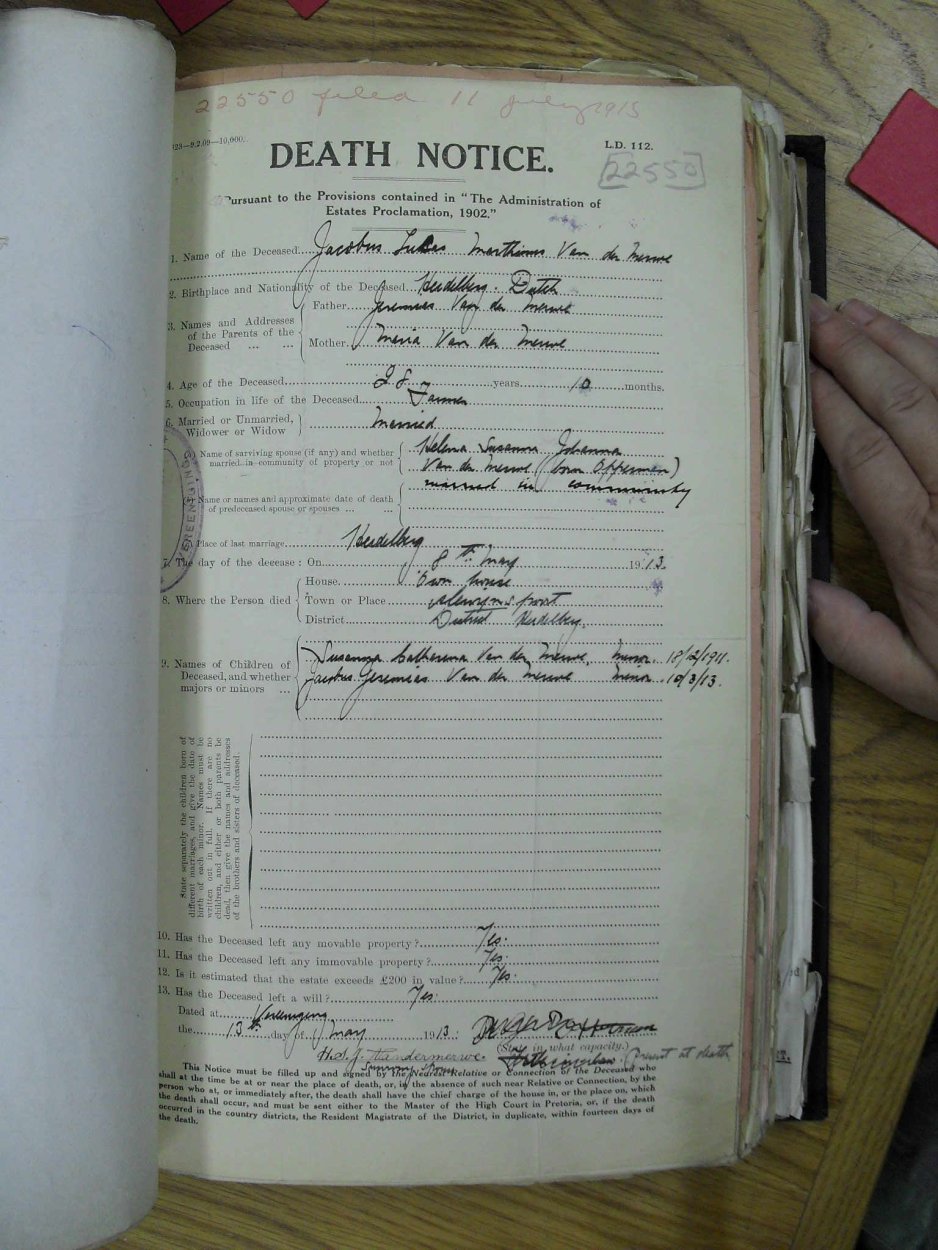 22550 filed 11 July 1915
L.D. 112.
DEATH NOTICE.
22550
Pursuant to the Provisions contained in "The Administration of
Estates Proclamation, 1902."
1. Name of the Deceased Jacobus Lukas Marthinus Van der Merwe
2. Birthplace and Nationality of the Deceased Heidelberg. Dutch
3. Names and Addresses of the Parents of the Deceased
Father Jeremias Van der Merwe
Mother Maria Van der Merwe
4. Age of the Deceased 28 years 10 months.
5. Occupation in life of the Deceased Farmer
6. Married or Unmarried, Widower or Widow Married
Name of surviving spouse (if any) and whether
married in community of property or not
Helena Susanna Johanna
Van der Merwe (born Opperman)
married in community
Name or names and approximate date of death
of predeceased spouse or spouses
Place of last marriage Heidelberg
VEREENIGING
7. The day of the decease: On 8th May 1913.
8. Where the Person died
House Own house
Town or Place
District District Heidelberg.
9. Names of Children of
Deceased, and whether
majors or minors
Susanna Catherena Van der Merwe, minor. 18/2/1911.
Jacobus Jeremias Van der Merwe minor 10/3/13.
State separately the children born of
different marriages, and give the date of
birth of each minor. Names must be
written out in full. If there are no
children, and either or both parents be
dead, then give the names and addresses
of the brothers and sisters of deceased.
10. Has the Deceased left any movable property? Yes.
11. Has the Deceased left any immovable property? Yes.
12. Is it estimated that the estate exceeds £200 in value? Yes.
13. Has the Deceased left a will? Yes.
Dated at Vereeniging
the 13th day of May 1913.
(State in what capacity.)
H.S.J. Vandermerwe
Surviving Spouse
present at death
This Notice must be filled up and signed by the Nearest Relative or Connection of the Deceased who
shall at the time be at or near the place of death, or, in the absence of such near Relative or Connection, by the
person who at, or immediately after, the death shall have the chief charge of the house in, or the place on, which
the death shall occur, and must be sent either to the Master of the High Court in Pretoria, or, if the death
occurred in the country districts, the Resident Magistrate of the District, in duplicate, within fourteen days of
the death.